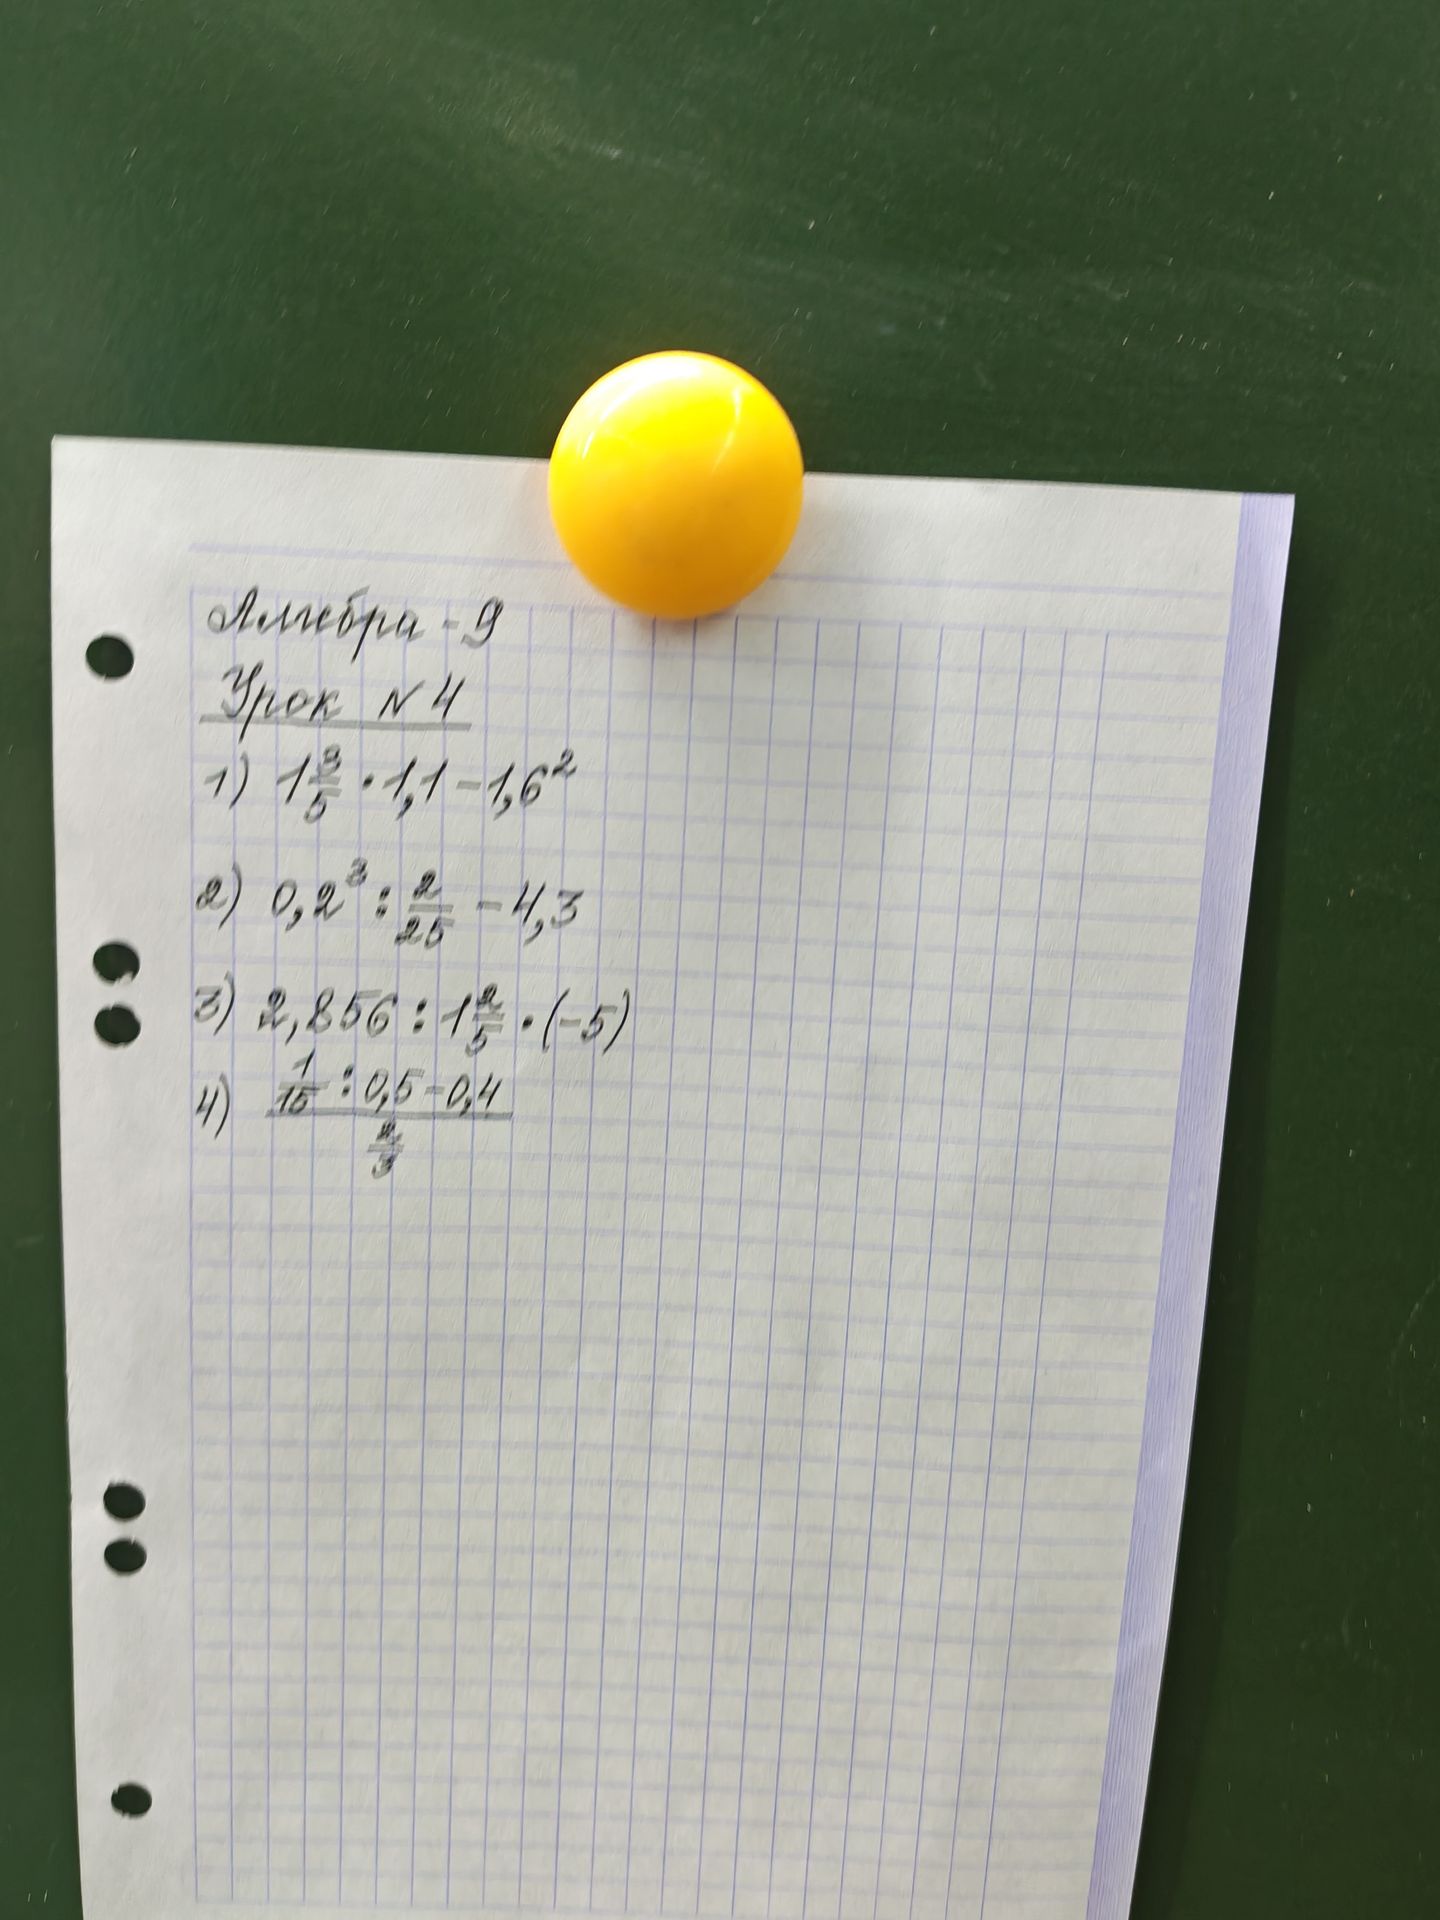 Алгебра - 9
Урок N 4
1) 1 3/5 · 1,1 - 1,6²
2) 0,2³ : 2/25 - 4,3
3) 2,856 : 1 2/5 · (-5)
4) (1/15 : 0,5 - 0,4) / (2/3)